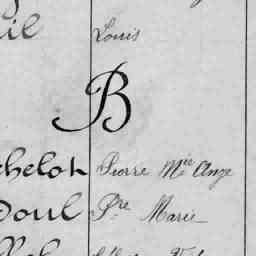 Louis
B
chelot Pierre Mie Ange
Doul Pre Marie